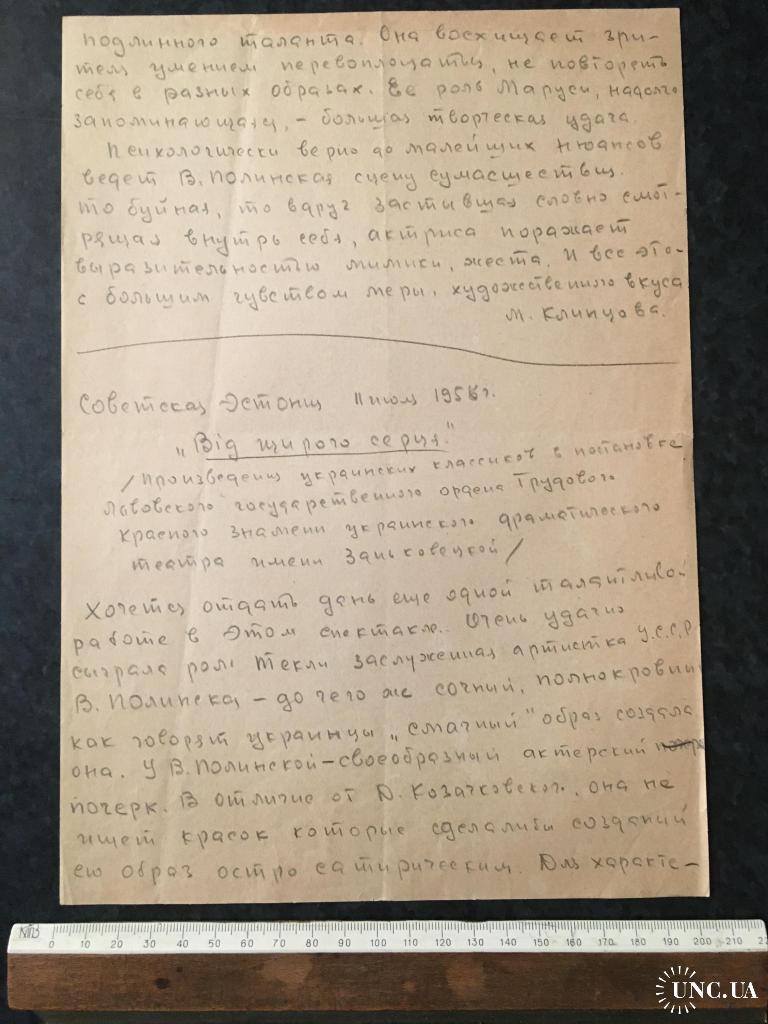 подлинного таланта. Она восхищает зри-
теля умением перевоплощаться, не повторять
себя в разных образах. Ее роль Маруси, надолго
запоминающаяся, – большая творческая удача.
Психологически верно до малейших нюансов
ведет В. Полинская сцену сумасшествия.
то буйная, то вдруг застывшая словно смот-
рящая внутрь себя, актриса поражает
выразительностью мимики, жеста. И все это-
с большим чувством меры, художественного вкуса.
М. Клипцова.
Советская Эстония 11 июля 1956 г.
„Від щирого серця."
/Произведения украинских классиков в постановке
Львовского государственного ордена Трудового
Красного знамени украинского драматического
театра имени Заньковецкой/
Хочется отдать дань еще одной талантливой
работе в этом спектакле. Очень удачно
сыграла роль Текли заслуженная артистка У.С.С.Р
В. Полинская – до чего же сочный, полнокровный
как говорят украинцы „смачный" образ создала
она. У В. Полинской – своеобразный актерский
почерк. В отличие от Д. Козачковского, она не
ищет красок которые сделалибы созданий
ею образ остро сатирическим. Для характе-
NIIB
0 10 20 30 40 50 60 70 80 90 100 110 120 130 140 150 160 170 180 190 200 210
UNC.UA